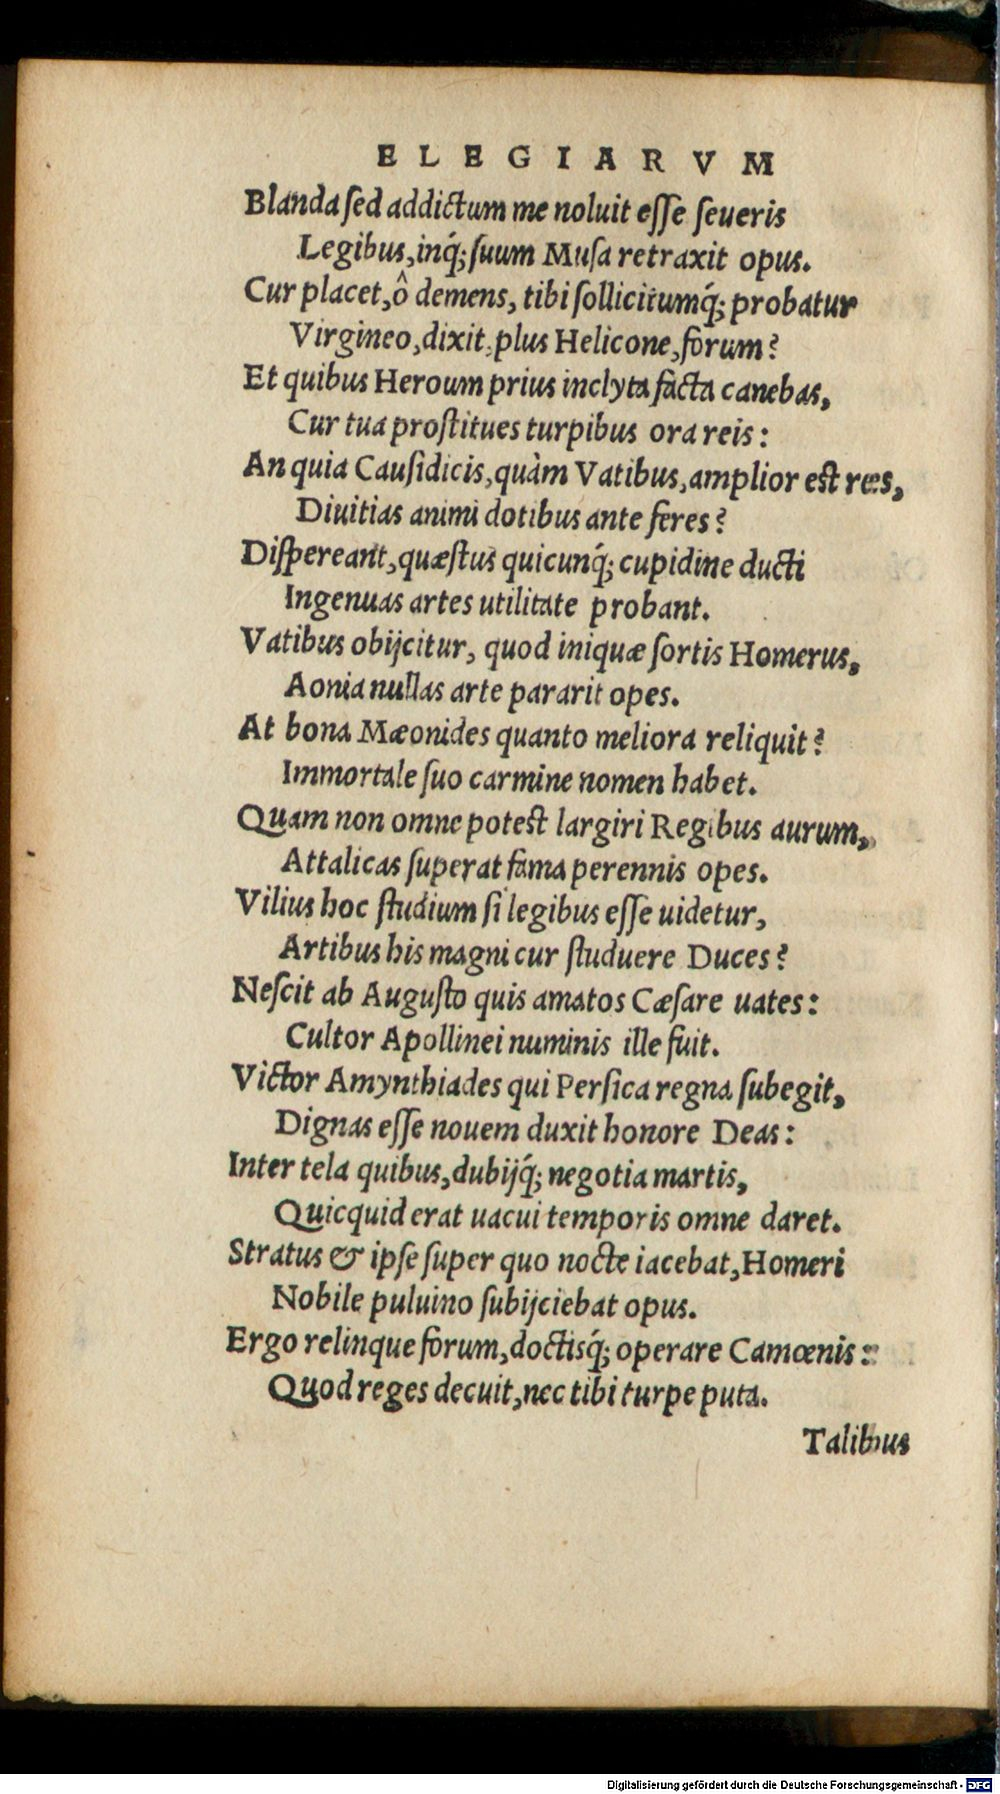 ELEGIARVM
Blanda ſed addictum me noluit eſſe ſeueris
Legibus, inq́; ſuum Muſa retraxit opus.
Cur placet, ô demens, tibi ſollicitumq́; probatur
Virgineo, dixit, plus Helicone, forum?
Et quibus Heroum prius inclyta facta canebas,
Cur tua proſtitues turpibus ora reis:
An quia Cauſidicis, quàm Vatibus, amplior est res,
Diuitias animi dotibus ante feres?
Diſpereant, quæſtus quicunq́; cupidine ducti
Ingenuas artes utilitate probant.
Vatibus obijcitur, quod iniquæ ſortis Homerus,
Aonia nullas arte pararit opes.
At bona Mæonides quanto meliora reliquit?
Immortale ſuo carmine nomen habet.
Quam non omne potest largiri Regibus aurum,
Attalicas ſuperat fama perennis opes.
Vilius hoc ſtudium ſi legibus eſſe uidetur,
Artibus his magni cur ſtuduere Duces?
Neſcit ab Auguſto quis amatos Cæſare uates:
Cultor Apollinei numinis ille fuit.
Victor Amynthiades qui Perſica regna ſubegit,
Dignas eſſe nouem duxit honore Deas:
Inter tela quibus, dubijq́; negotia martis,
Quicquid erat uacui temporis omne daret.
Stratus & ipſe ſuper quo nocte iacebat, Homeri
Nobile puluino ſubijciebat opus.
Ergo relinque forum, doctisq́; operare Camœnis:
Quod reges decuit, nec tibi turpe puta.
Talibus
Digitalisierung gefördert durch die Deutsche Forschungsgemeinschaft - DFG